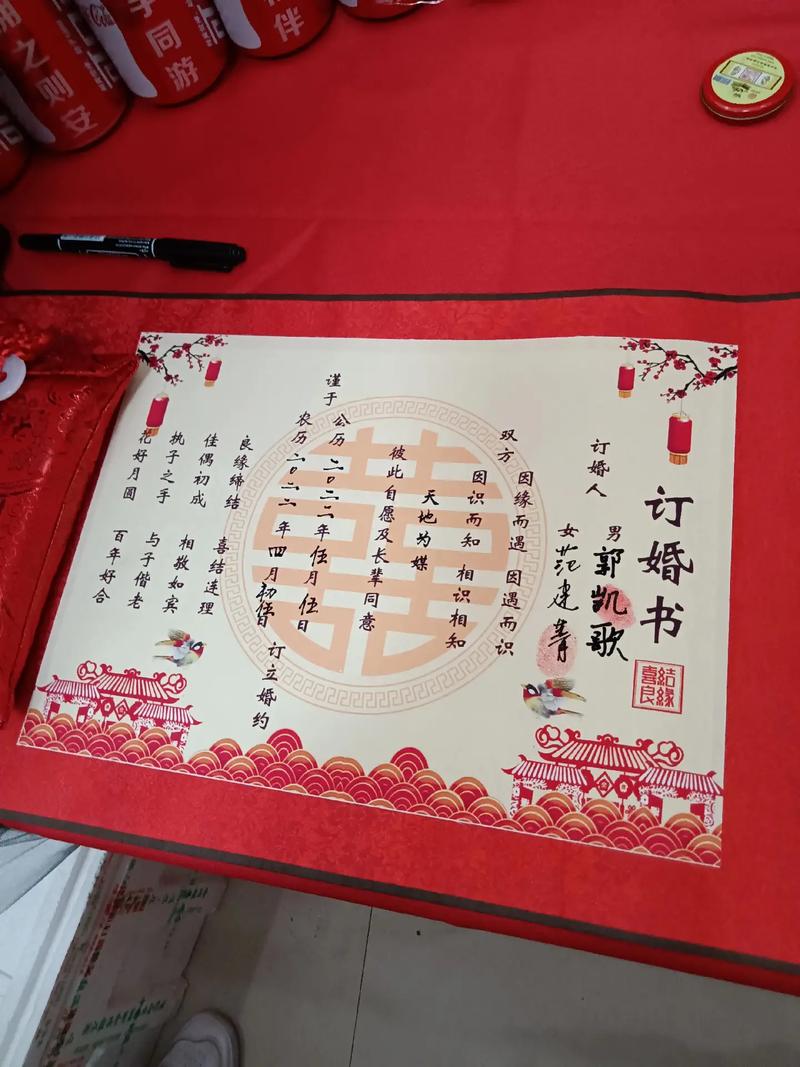 之则安
手同游
伴
订婚书
喜結
良緣
订婚人
男 郭凯歌
女 范建菁
双方
因缘而遇 因遇而识
因识而知 相识相知
天地为媒
彼此自愿及长辈同意
谨于公历二〇二二年伍月伍日
农历二〇二二年四月初伍日 订立婚约
良缘缔结 喜结连理
佳偶初成 相敬如宾
执子之手 与子偕老
花好月圆 百年好合